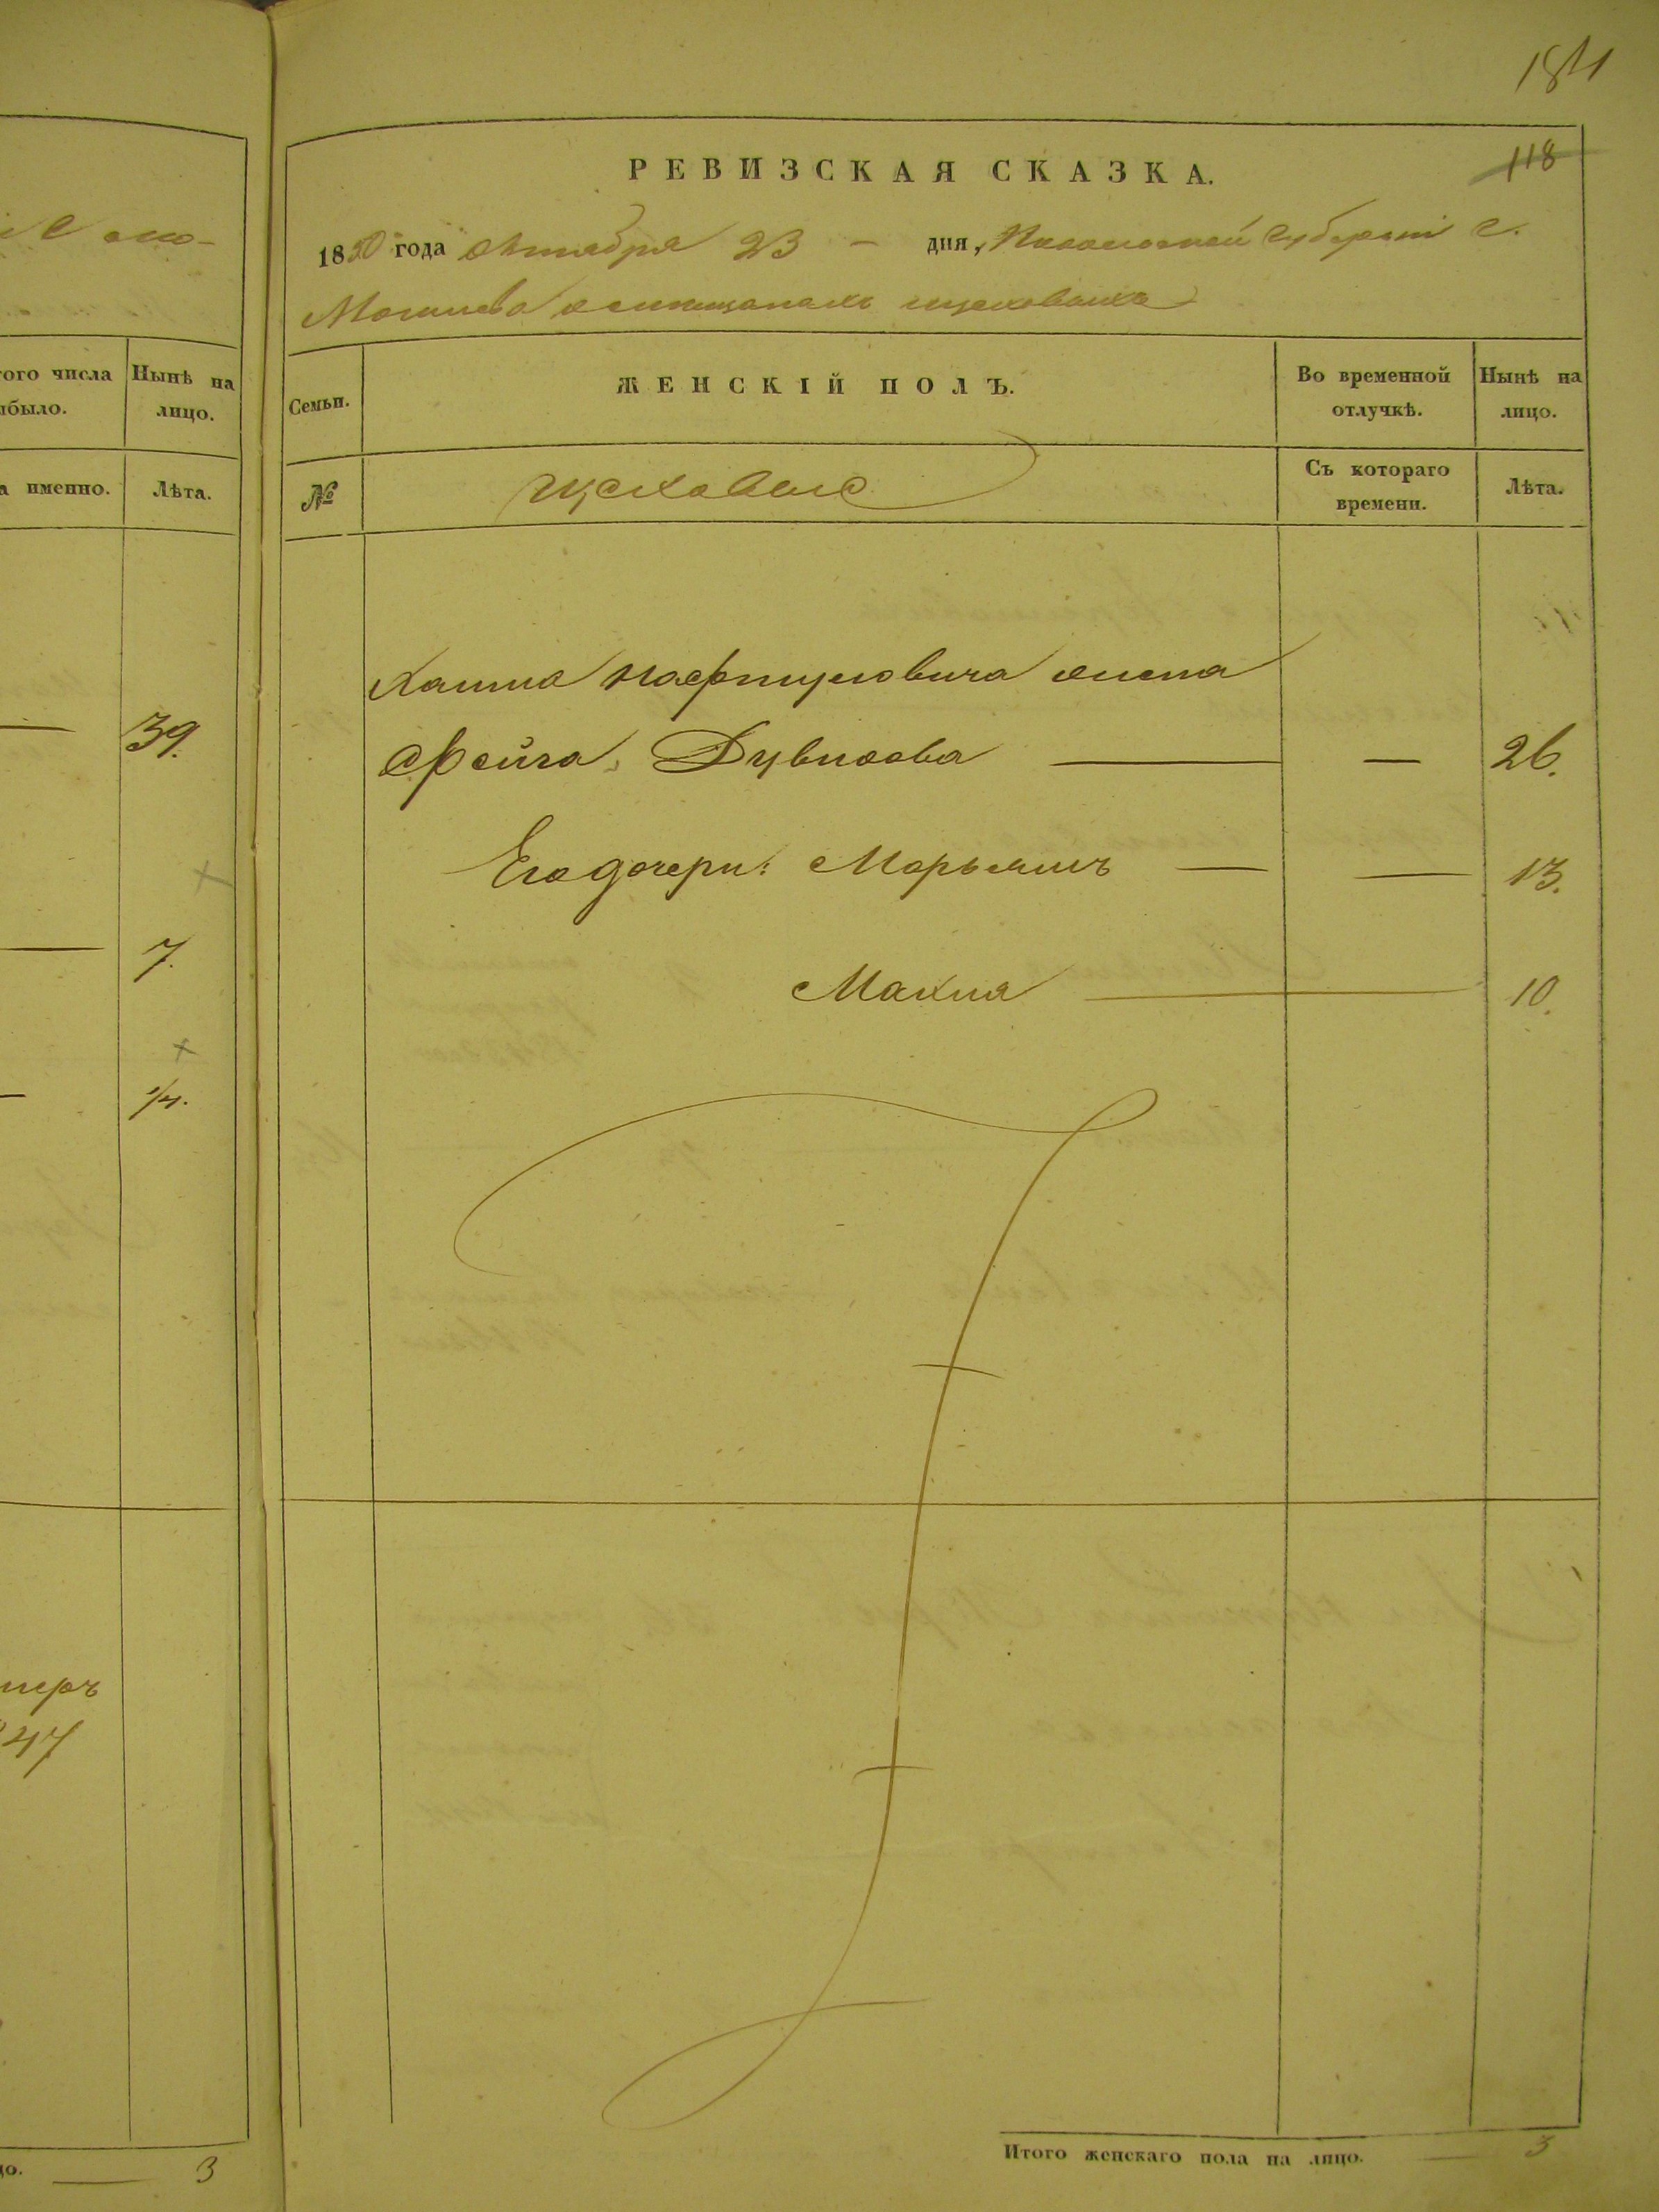 184
118
РЕВИЗСКАЯ СКАЗКА.
1850 года Октября 23 – дня, Подольской Губернии Г.
Могилева о мещанахъ цеховыхъ
того числа
было.
Нынѣ на
лицо.
а именно.
Лѣта.
Семьи.
ЖЕНСКІЙ ПОЛЪ.
Во временной
отлучкѣ.
Нынѣ на
лицо.
№
Цеховые
Съ котораго
времени.
Лѣта.
Нафтуловича жена
39.
Фейга Дувидова — — 26.
Его дочери: Марьямъ — — 13.
7.
Махля — 10.
1/4.
47
3
Итого женскаго пола на лицо. — 3